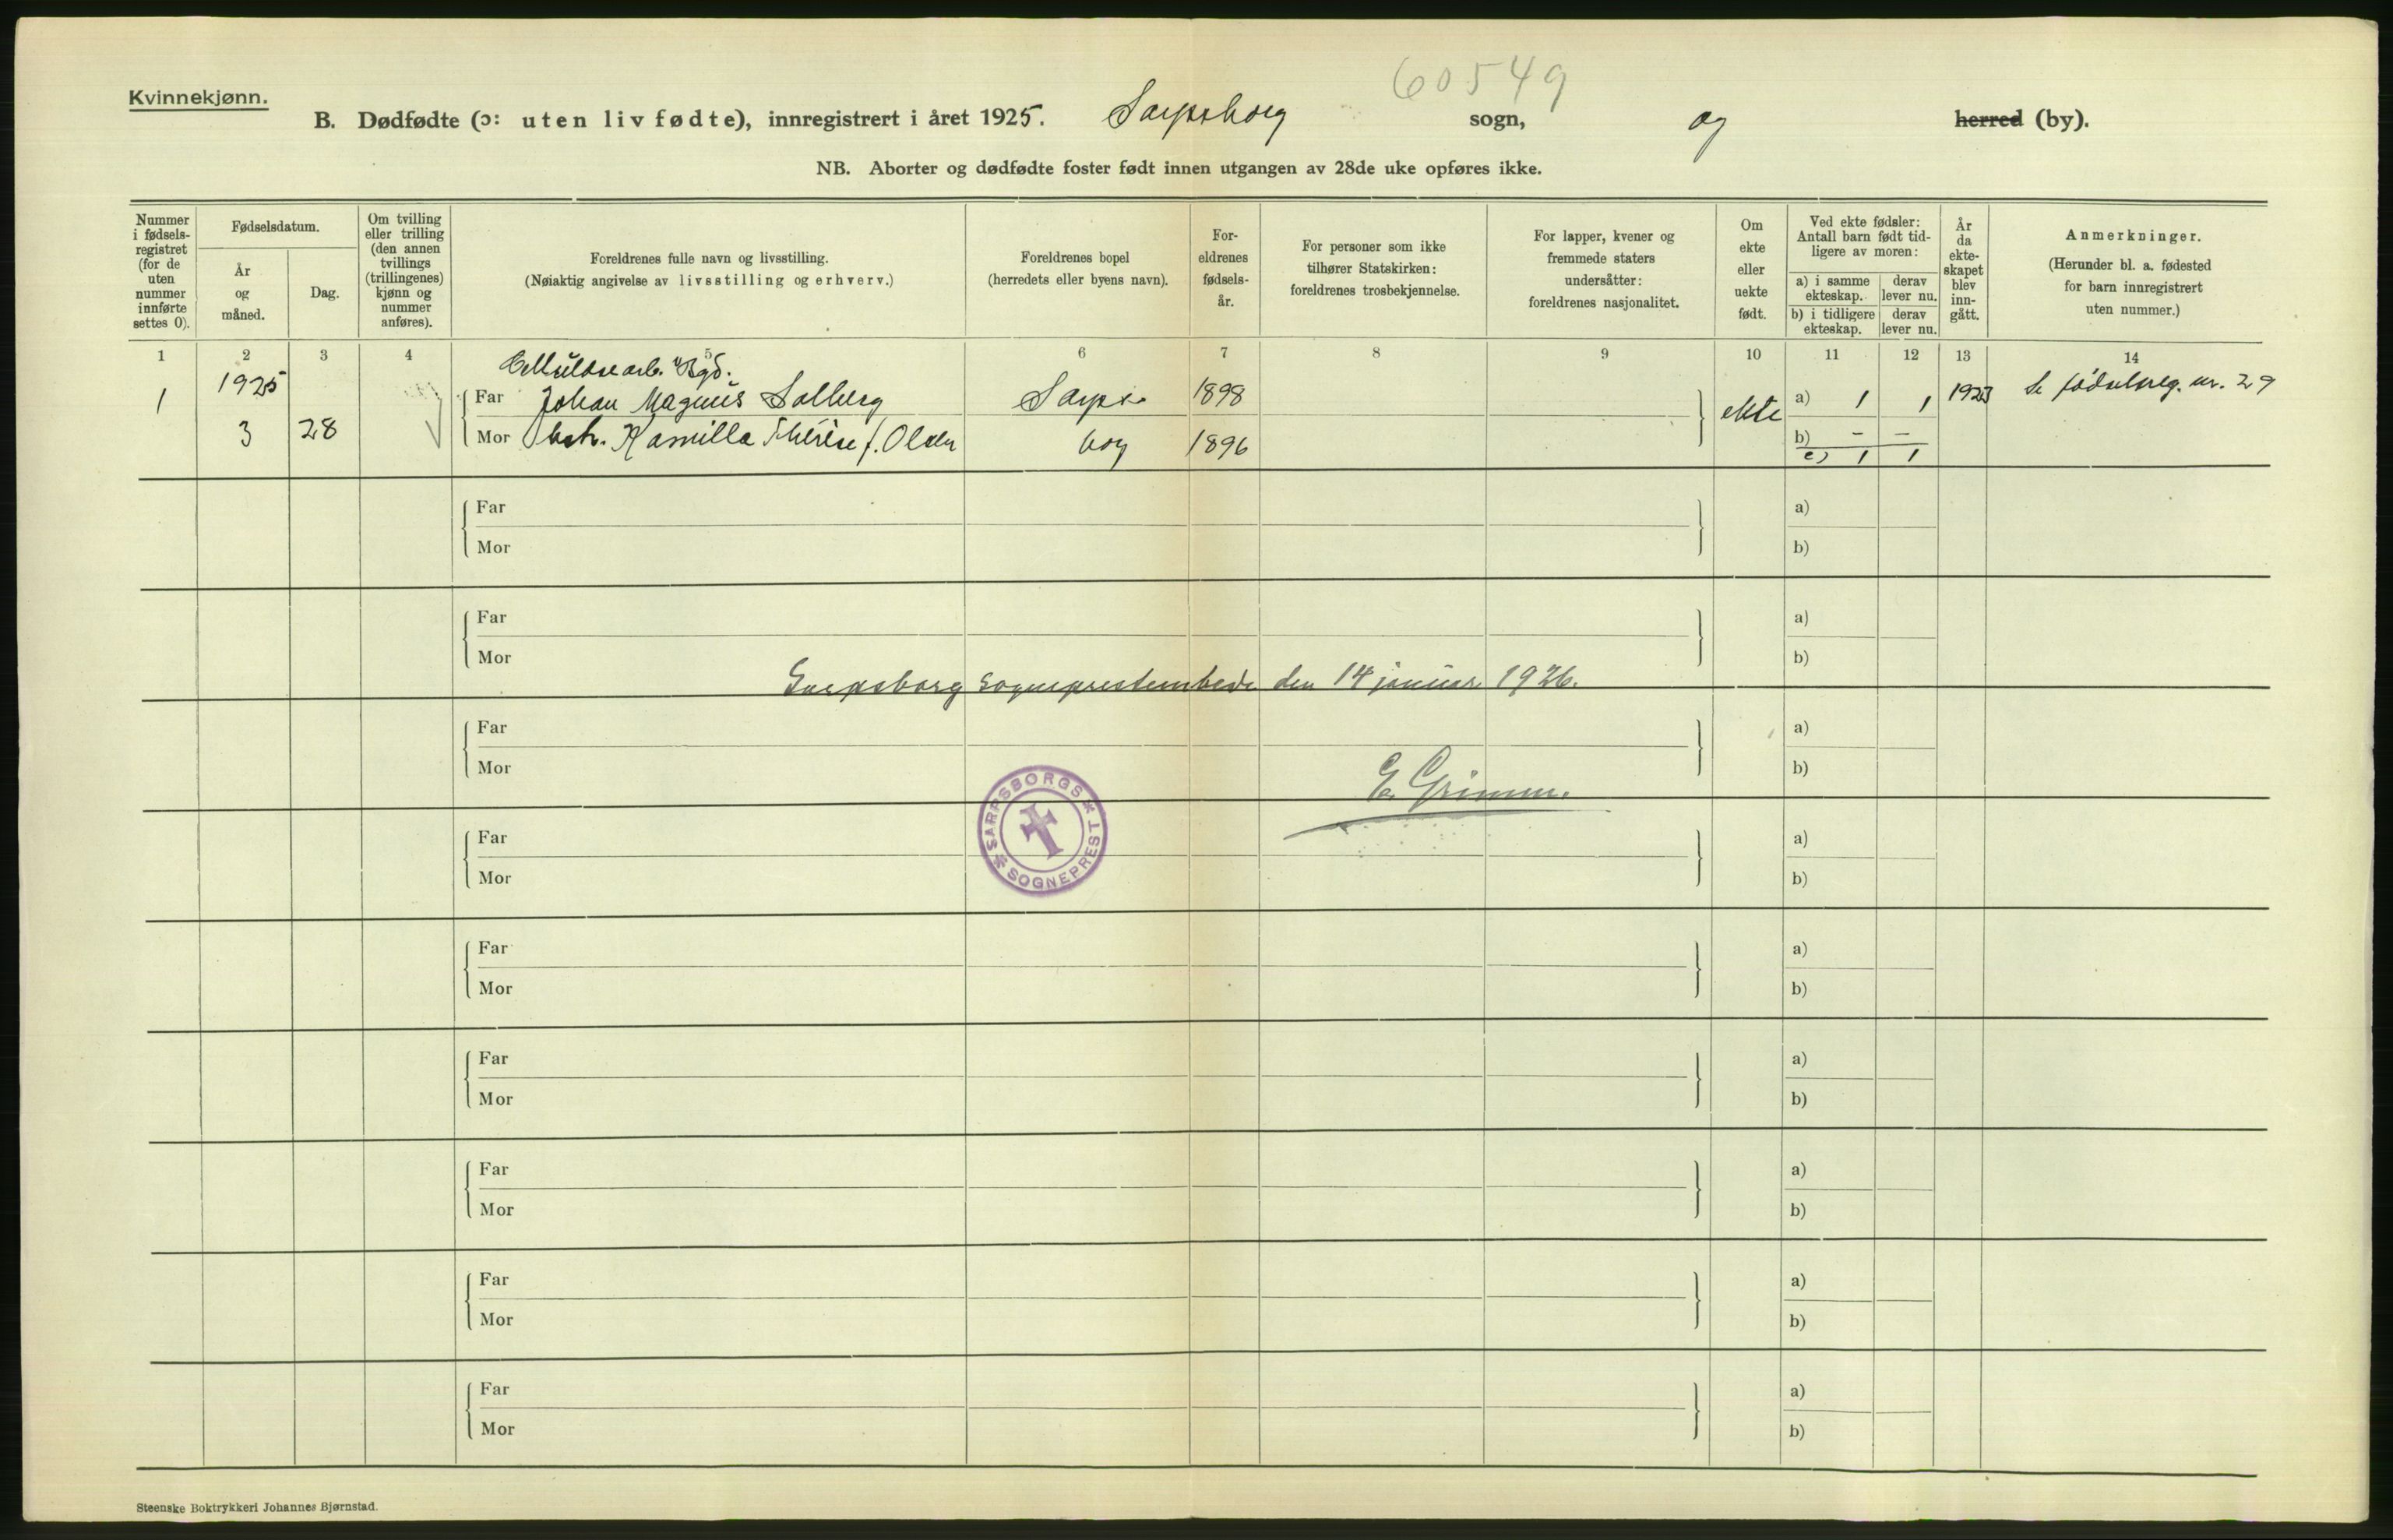 60549
Kvinnekjønn.
B. Dødfødte (ɔ: uten liv fødte), innregistrert i året 1925. Sarpsborg sogn, og herred (by).
NB. Aborter og dødfødte foster født innen utgangen av 28de uke opføres ikke.
Nummer i fødsels-registret (for de uten nummer innførte settes 0).
Fødselsdatum.
År og måned.
Dag.
Om tvilling eller trilling (den annen tvillings (trillingenes) kjønn og nummer anføres).
Foreldrenes fulle navn og livsstilling.
(Nøiaktig angivelse av livsstilling og erhverv.)
Foreldrenes bopel
(herredets eller byens navn).
For-eldrenes fødsels-år.
For personer som ikke tilhører Statskirken: foreldrenes trosbekjennelse.
For lapper, kvener og fremmede staters undersåtter: foreldrenes nasjonalitet.
Om ekte eller uekte født.
Ved ekte fødsler: Antall barn født tid-ligere av moren:
a) i samme ekteskap. derav lever nu.
b) i tidligere ekteskap. derav lever nu.
År da ekte-skapet blev inn-gått.
Anmerkninger.
(Herunder bl. a. fødested for barn innregistrert uten nummer.)
1 2 3 4 5 6 7 8 9 10 11 12 13 14
Far Johan Magnus Solberg
Mor Kamilla Thérèse f. Olsen
1 1925 3 28
Sarpsborg
1898
1896
ekte
a) 1 1
b) – –
c) 1 1
1923
Se fødselsreg. nr. 29
Far
Mor
a)
b)
Far
Mor
a)
b)
Sarpsborg sogneprestembede den 14 januar 1926.
Far
Mor
a)
b)
E. Grimm.
SARPSBORGS * SOGNEPREST *
Far
Mor
a)
b)
Far
Mor
a)
b)
Far
Mor
a)
b)
Far
Mor
a)
b)
Far
Mor
a)
b)
Far
Mor
a)
b)
Steenske Boktrykkeri Johannes Bjørnstad.